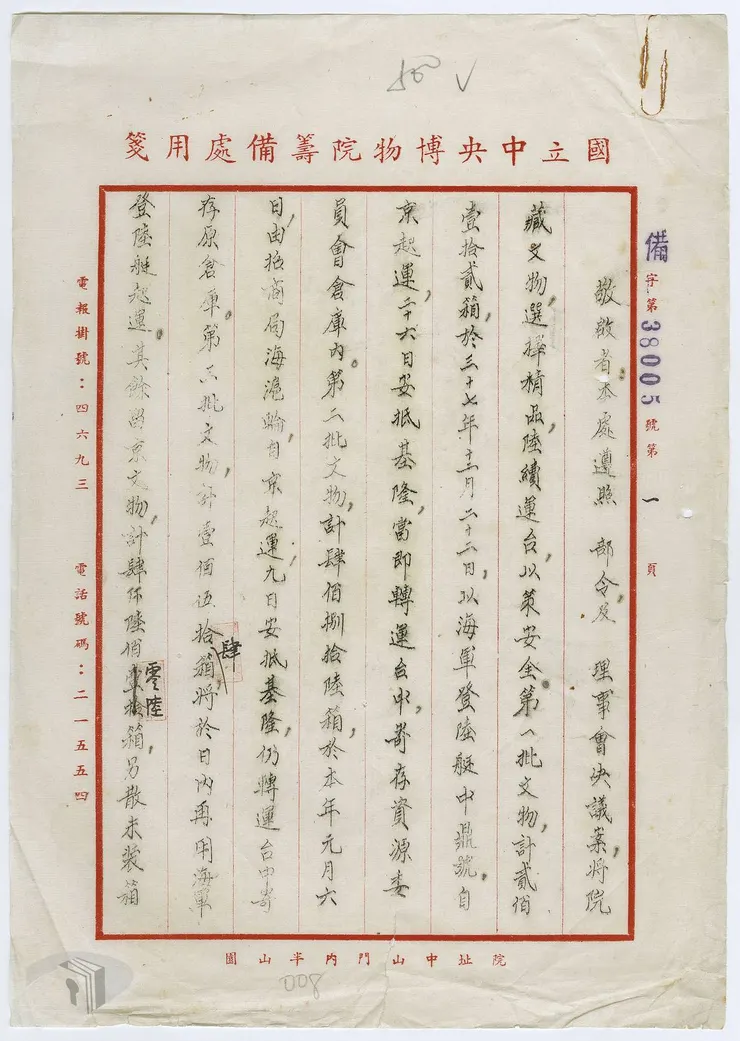 國立中央博物院籌備處用箋
備字第38005號第一頁
敬啟者:本處遵照 部令,及 理事會決議案,將院
藏文物,選擇精品陸續運台,以策安全。第一批文物,計貳佰
壹拾貳箱,於三十七年十二月二十二日,以海軍登陸艇中鼎號,自
京起運,二十六日安抵基隆,當即轉運台中,寄存資源委
員會倉庫內。第二批文物,計肆佰捌拾陸箱,於本年元月六
日,由招商局海滬輪,自京起運,九日安抵基隆,仍轉運台中寄
存原倉庫。第三批文物,計壹佰伍拾肆箱,將於日內再用海軍
登陸艇起運。其餘留京文物,計肆仟陸佰零陸箱,另散未裝箱
電報掛號:四六九三 電話號碼:二一五五四
院址中山門內半山園
008